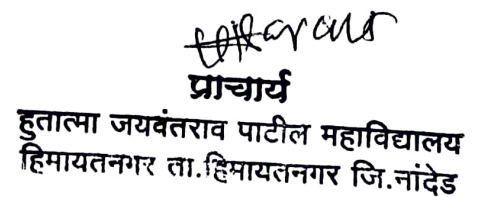 प्राचार्य
हुतात्मा जयवंतराव पाटील महाविद्यालय
हिमायतनगर ता.हिमायतनगर जि.नांदेड